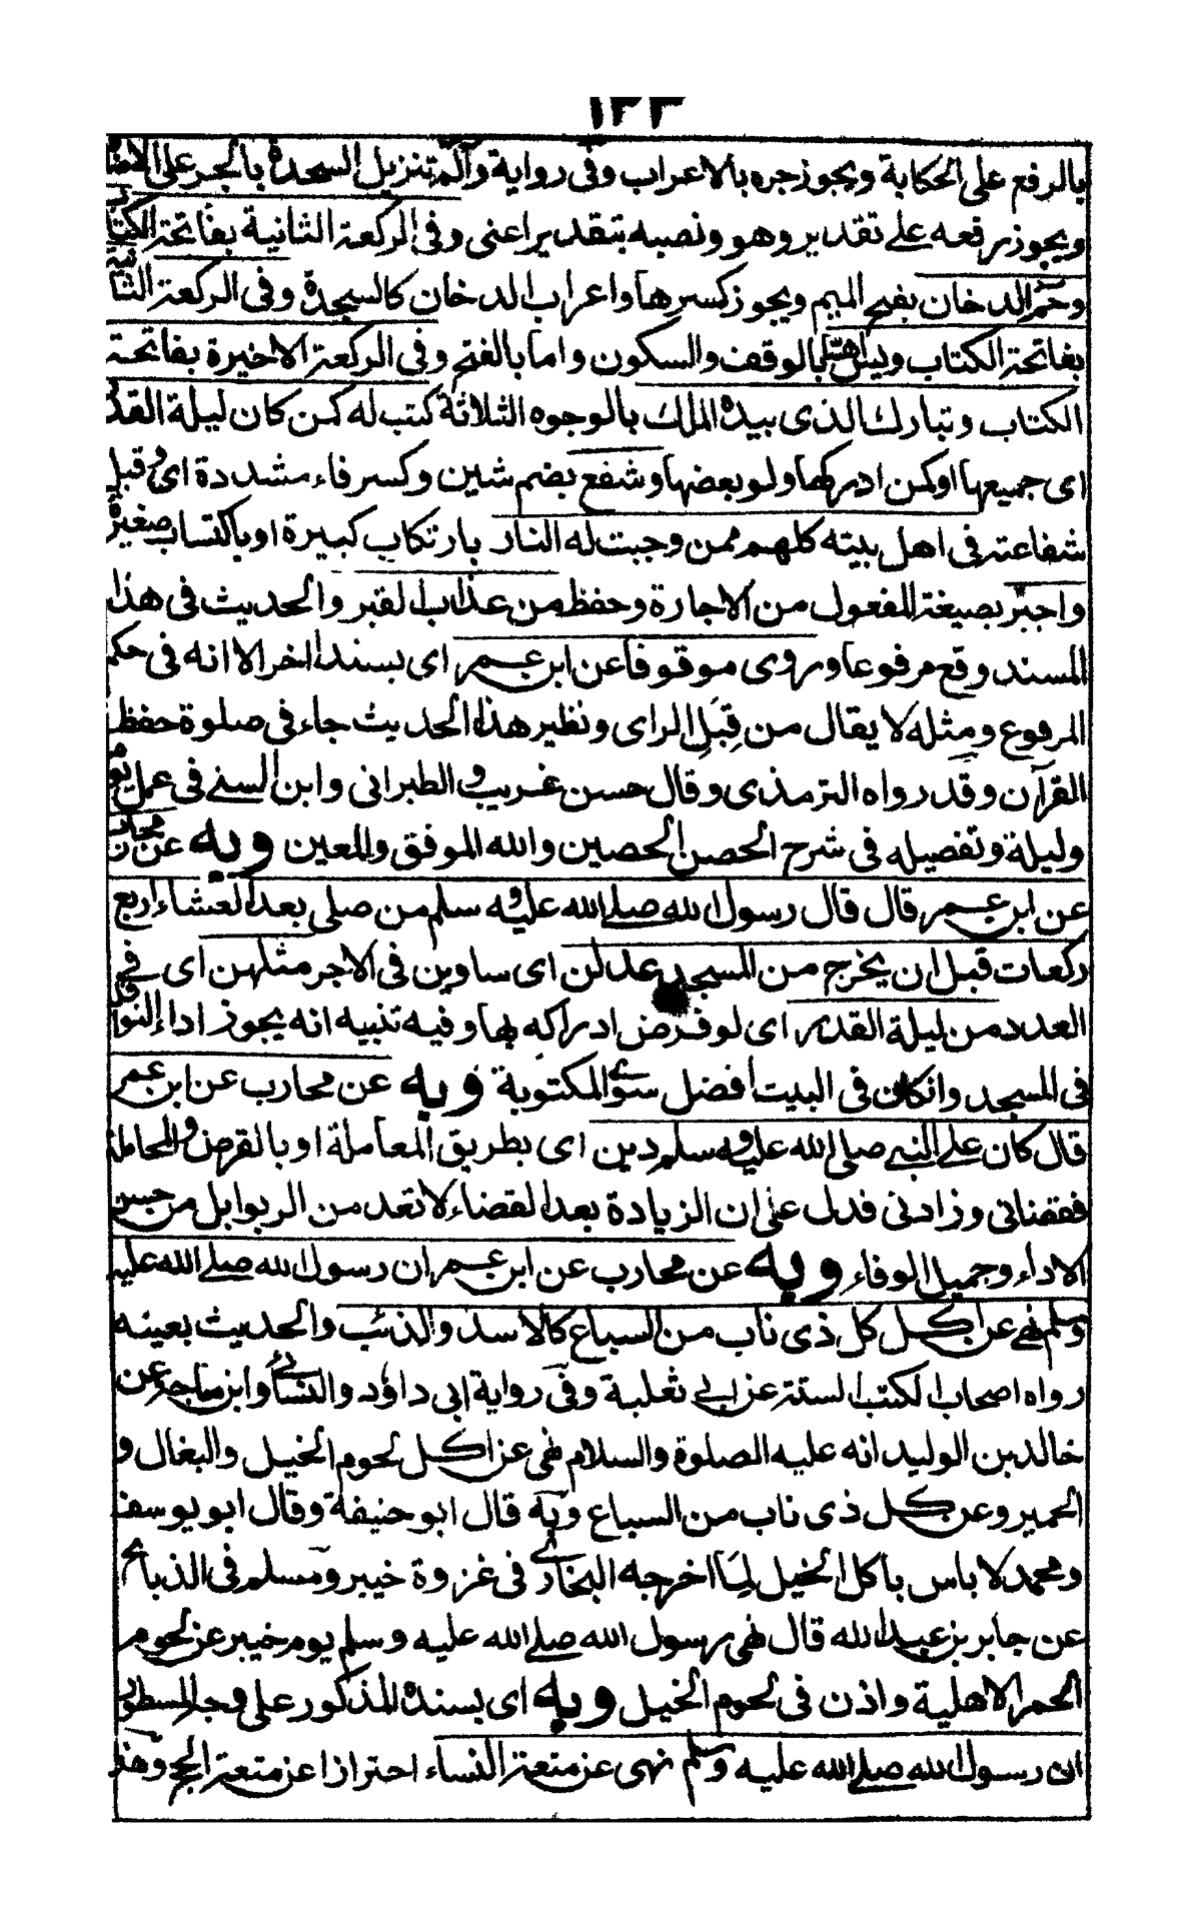 ١٣٣
بالرفع على الحكاية ويجوز جره بالاعراب وفى رواية وآلم تنزيل السجدة بالجر على الاضا
ويجوز رفعه على تقدير وهو ونصبه بتقدير اعنى وفى الركعة الثانية بفاتحة الكتاب
وحم الدخان بفتح الميم ويجوز كسرها واعراب الدخان كالسجدة وفى الركعة الثالثة
بفاتحة الكتاب ويس بالوقف والسكون واما بالفتح وفى الركعة الاخيرة بفاتحة
الكتاب وتبارك الذى بيده الملك بالوجوه الثلاثة كتب له كمن كان ليلة القدر
اى جميعها او كمن ادركها ولو بعضها وشفع بضم شين وكسر فاء مشددة اى قبل
شفاعته فى اهل بيته كلهم ممن وجبت له النار بارتكاب كبيرة او باكتساب صغيرة
واجير بصيغة المفعول من الاجارة وحفظ من عذاب القبر والحديث فى هذا
المسند وقع مرفوعا وروى موقوفا عن ابن عمر اى بسند اخر الا انه فى حكم
المرفوع ومثله لا يقال من قِبَلِ الراى ونظير هذا الحديث جاء فى صلوة حفظ
القرآن وقد رواه الترمذى وقال حسن غريب والطبرانى وابن السنى فى عمل يوم
وليلة وتفصيله فى شرح الحصن الحصين والله الموفق والمعين وبه عن محارب
عن ابن عمر قال قال رسول الله صلى الله عليه وسلم من صلى بعد العشاء اربع
ركعات قبل ان يخرج من المسجد عدلن اى ساوين فى الاجر مثلهن اى فى
العدد من ليلة القدر اى لو فرض ادراكه بها وفيه تنبيه انه يجوز اداء النوافل
فى المسجد وانكان فى البيت افضل سوى المكتوبة وبه عن محارب عن ابن عمر
قال كان على النبى صلى الله عليه وسلم دين اى بطريق المعاملة او بالقرض والمجاملة
فقضانى وزادنى فدل على ان الزيادة بعد القضاء لا تعد من الربوا بل من حسن
الاداء وجميل الوفاء وبه عن محارب عن ابن عمر ان رسول الله صلى الله عليه
وسلم نهى عن اكل كل ذى ناب من السباع كالاسد والذئب والحديث بعينه
رواه اصحاب الكتب الستة عن ابى ثعلبة وفى رواية ابى داؤد والنسائى وابن ماجة عن
خالد بن الوليد انه عليه الصلوة والسلام نهى عن اكل لحوم الخيل والبغال و
الحمير وعن كل ذى ناب من السباع وبه قال ابو حنيفة وقال ابو يوسف
ومحمد لا باس باكل الخيل لِمَا اخرجه البخارى فى غزوة خيبر ومسلم فى الذبائح
عن جابر بن عبد الله قال نهى رسول الله صلى الله عليه وسلم يوم خيبر عن لحوم
الحمر الاهلية واذن فى لحوم الخيل وبه اى بسنده المذكور على وجه المسطور
ان رسول الله صلى الله عليه وسلم نهى عن متعة النساء احترازا عن متعة الحج وهذا